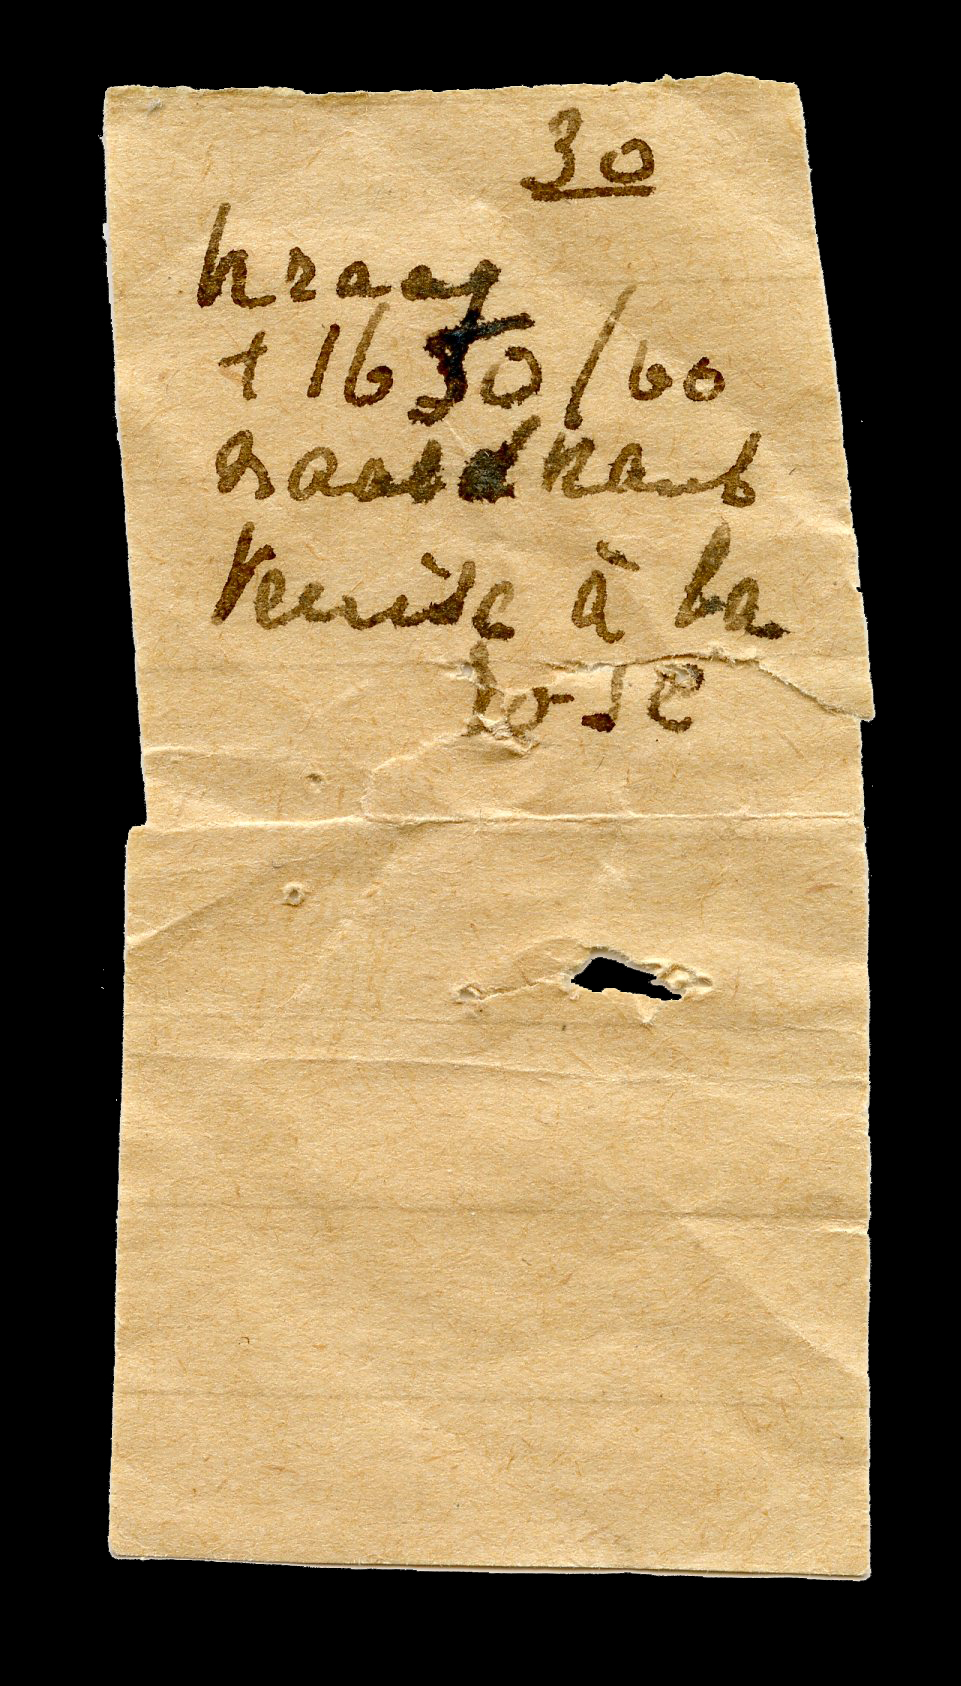 30
kraag
+ 1650/60
naaldkant
Venise à la
rose